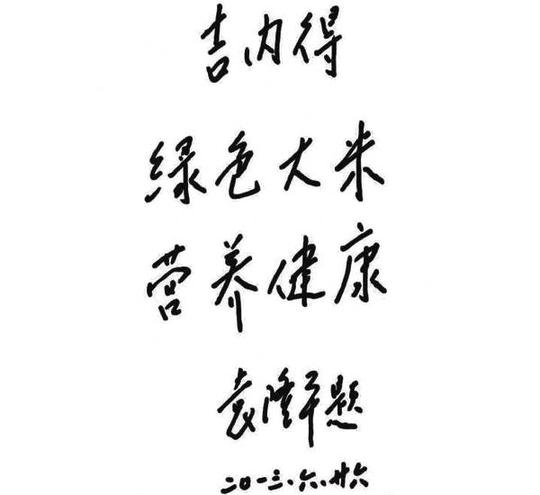 吉内得
绿色大米
营养健康
袁隆平题
二〇一三、六、廿六